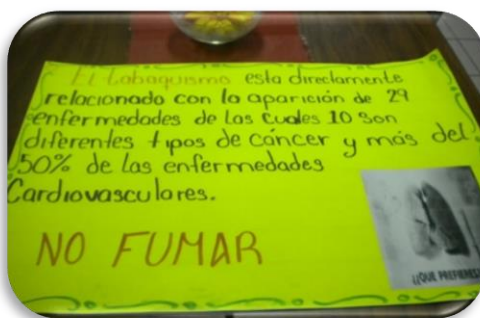 El tabaquismo esta directamente
relacionado con la aparición de 29
enfermedades de las cuales 10 son
diferentes tipos de cáncer y más del
50% de las enfermedades
Cardiovasculares.
NO FUMAR
¿QUE PREFIERES?